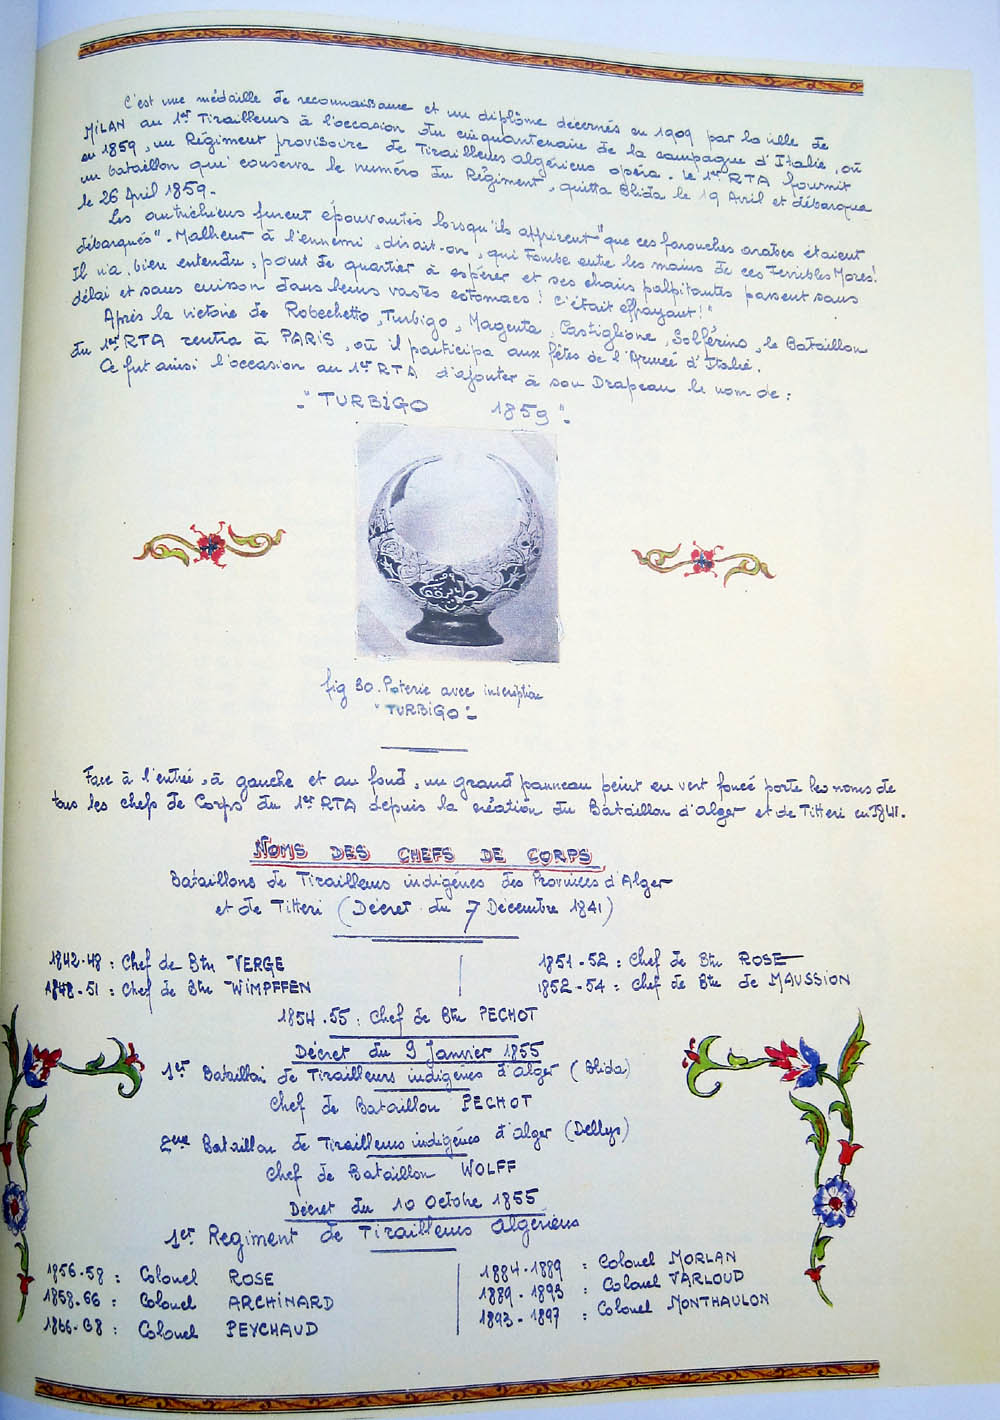 C'est une médaille de reconnaissance et un diplôme décernés en 1909 par la ville de
MILAN au 1er Tirailleurs à l'occasion du cinquantenaire de la campagne d'Italie, où
en 1859, un Régiment provisoire de Tirailleurs algériens opéra. Le 1er RTA fournit
un bataillon qui conserva le numéro du Régiment, quitta Blida le 19 Avril et débarqua
le 26 Avril 1859.-
Les autrichiens furent épouvantés lorsqu'ils apprirent "que ces farouches arabes étaient
débarqués". Malheur à l'ennemi, disait-on, qui tombe entre les mains de ces terribles Mores!
Il n'a, bien entendu, point de quartier à espérer et ses chairs palpitantes passent sans
délai et sans cuisson dans leurs vastes estomacs! C'était effrayant!"
Après la victoire de Robechetto, Turbigo, Magenta, Castiglione, Solférino, le Bataillon
du 1er RTA rentra à PARIS, où il participa aux fêtes de l'Armée d'Italie.
Ce fut ainsi l'occasion au 1er RTA d'ajouter à son Drapeau le nom de :
-"TURBIGO 1859".-
طوربيقو
fig 30. Poterie avec inscription
"TURBIGO"-
Face à l'entrée, à gauche et au fond, un grand panneau peint en vert foncé porte les noms de
tous les chefs de Corps du 1er RTA depuis la création du Bataillon d'Alger et de Titteri en 1841.
NOMS DES CHEFS DE CORPS
Bataillons de Tirailleurs indigénes des Provinces d'Alger
et de Titteri (Décret du 7 Décembre 1841)
1842-48 : Chef de Btn VERGE
1848-51 : Chef de Btn WIMPFFEN
1851-52 : Chef de Btn ROSE
1852-54 : Chef de Btn de MAUSSION
1854-55 : Chef de Btn PECHOT
Décret du 9 Janvier 1855
1er Bataillon de Tirailleurs indigénes d'Alger (Blida)
Chef de Bataillon PECHOT
2eme Bataillon de Tirailleurs indigénes d'Alger (Dellys)
Chef de Bataillon WOLFF
Décret du 10 Octobre 1855
1er Regiment de Tirailleurs algériens
1856-58 : Colonel ROSE
1858-66 : Colonel ARCHINARD
1866-68 : Colonel PEYCHAUD
1884-1889 : Colonel MORLAN
1889-1893 : Colonel VARLOUD
1893-1897 : Colonel MONTHAULON